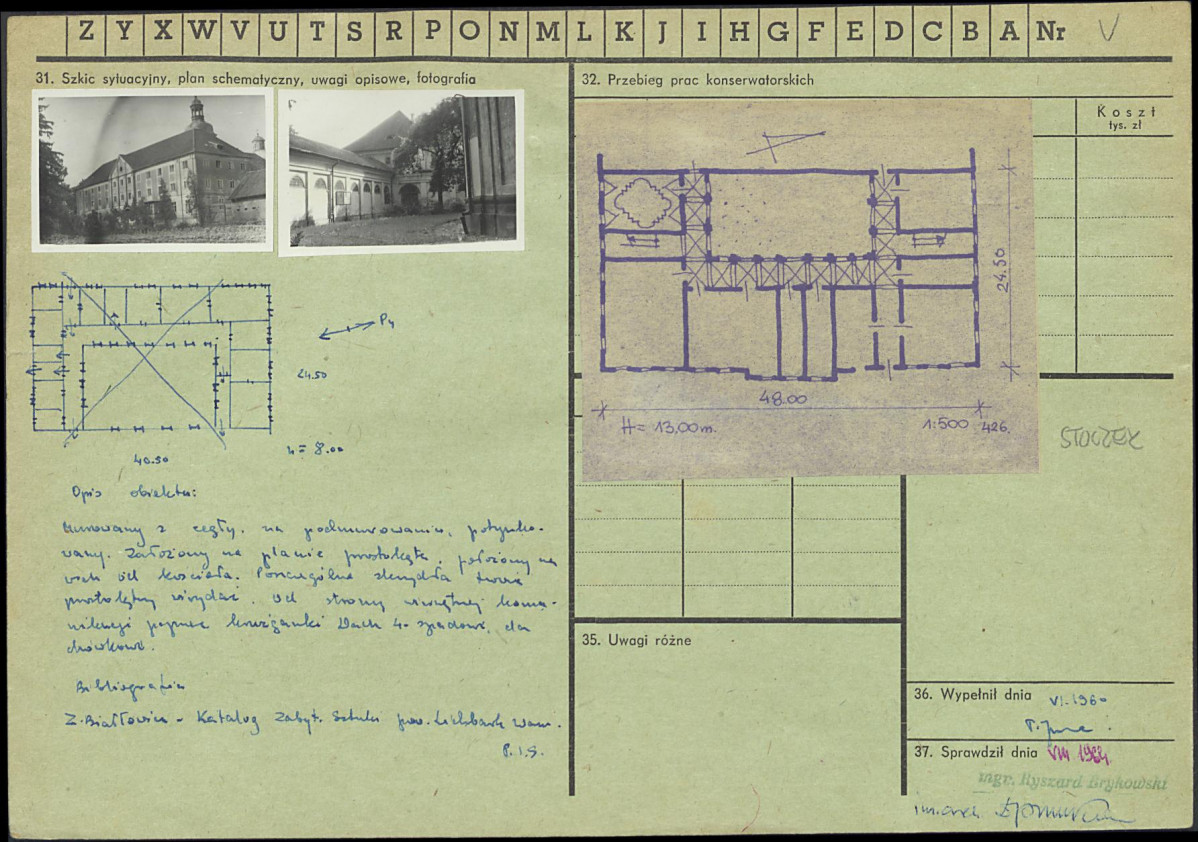 Z Y X W V U T S R P O N M L K J I H G F E D C B A Nr V
31. Szkic sytuacyjny, plan schematyczny, uwagi opisowe, fotografia
32. Przebieg prac konserwatorskich
Koszt
tys. zł
24.50
48.00
H = 13,00 m.
1:500 426.
STOCZEK
24.50
40.50
h = 8.00
Opis obiektu:
Murowany z cegły, na podmurowaniu, potynko-
wany. Założony na planie prostokąta, położony na
od kościoła. Poszczególne skrzydła
prostokątny wirydarz. Od strony wewnętrznej komu-
nikacji poprzez krużganki Dach 4-spadowy, da
chówkowy.
Bibliografia
Z. Białłowicz - Katalog Zabyt. Sztuki pow. Lidzbark Warm.
P.I.S.
35. Uwagi różne
36. Wypełnił dnia VI.1960
37. Sprawdził dnia VIII
mgr. Ryszard Brykowski